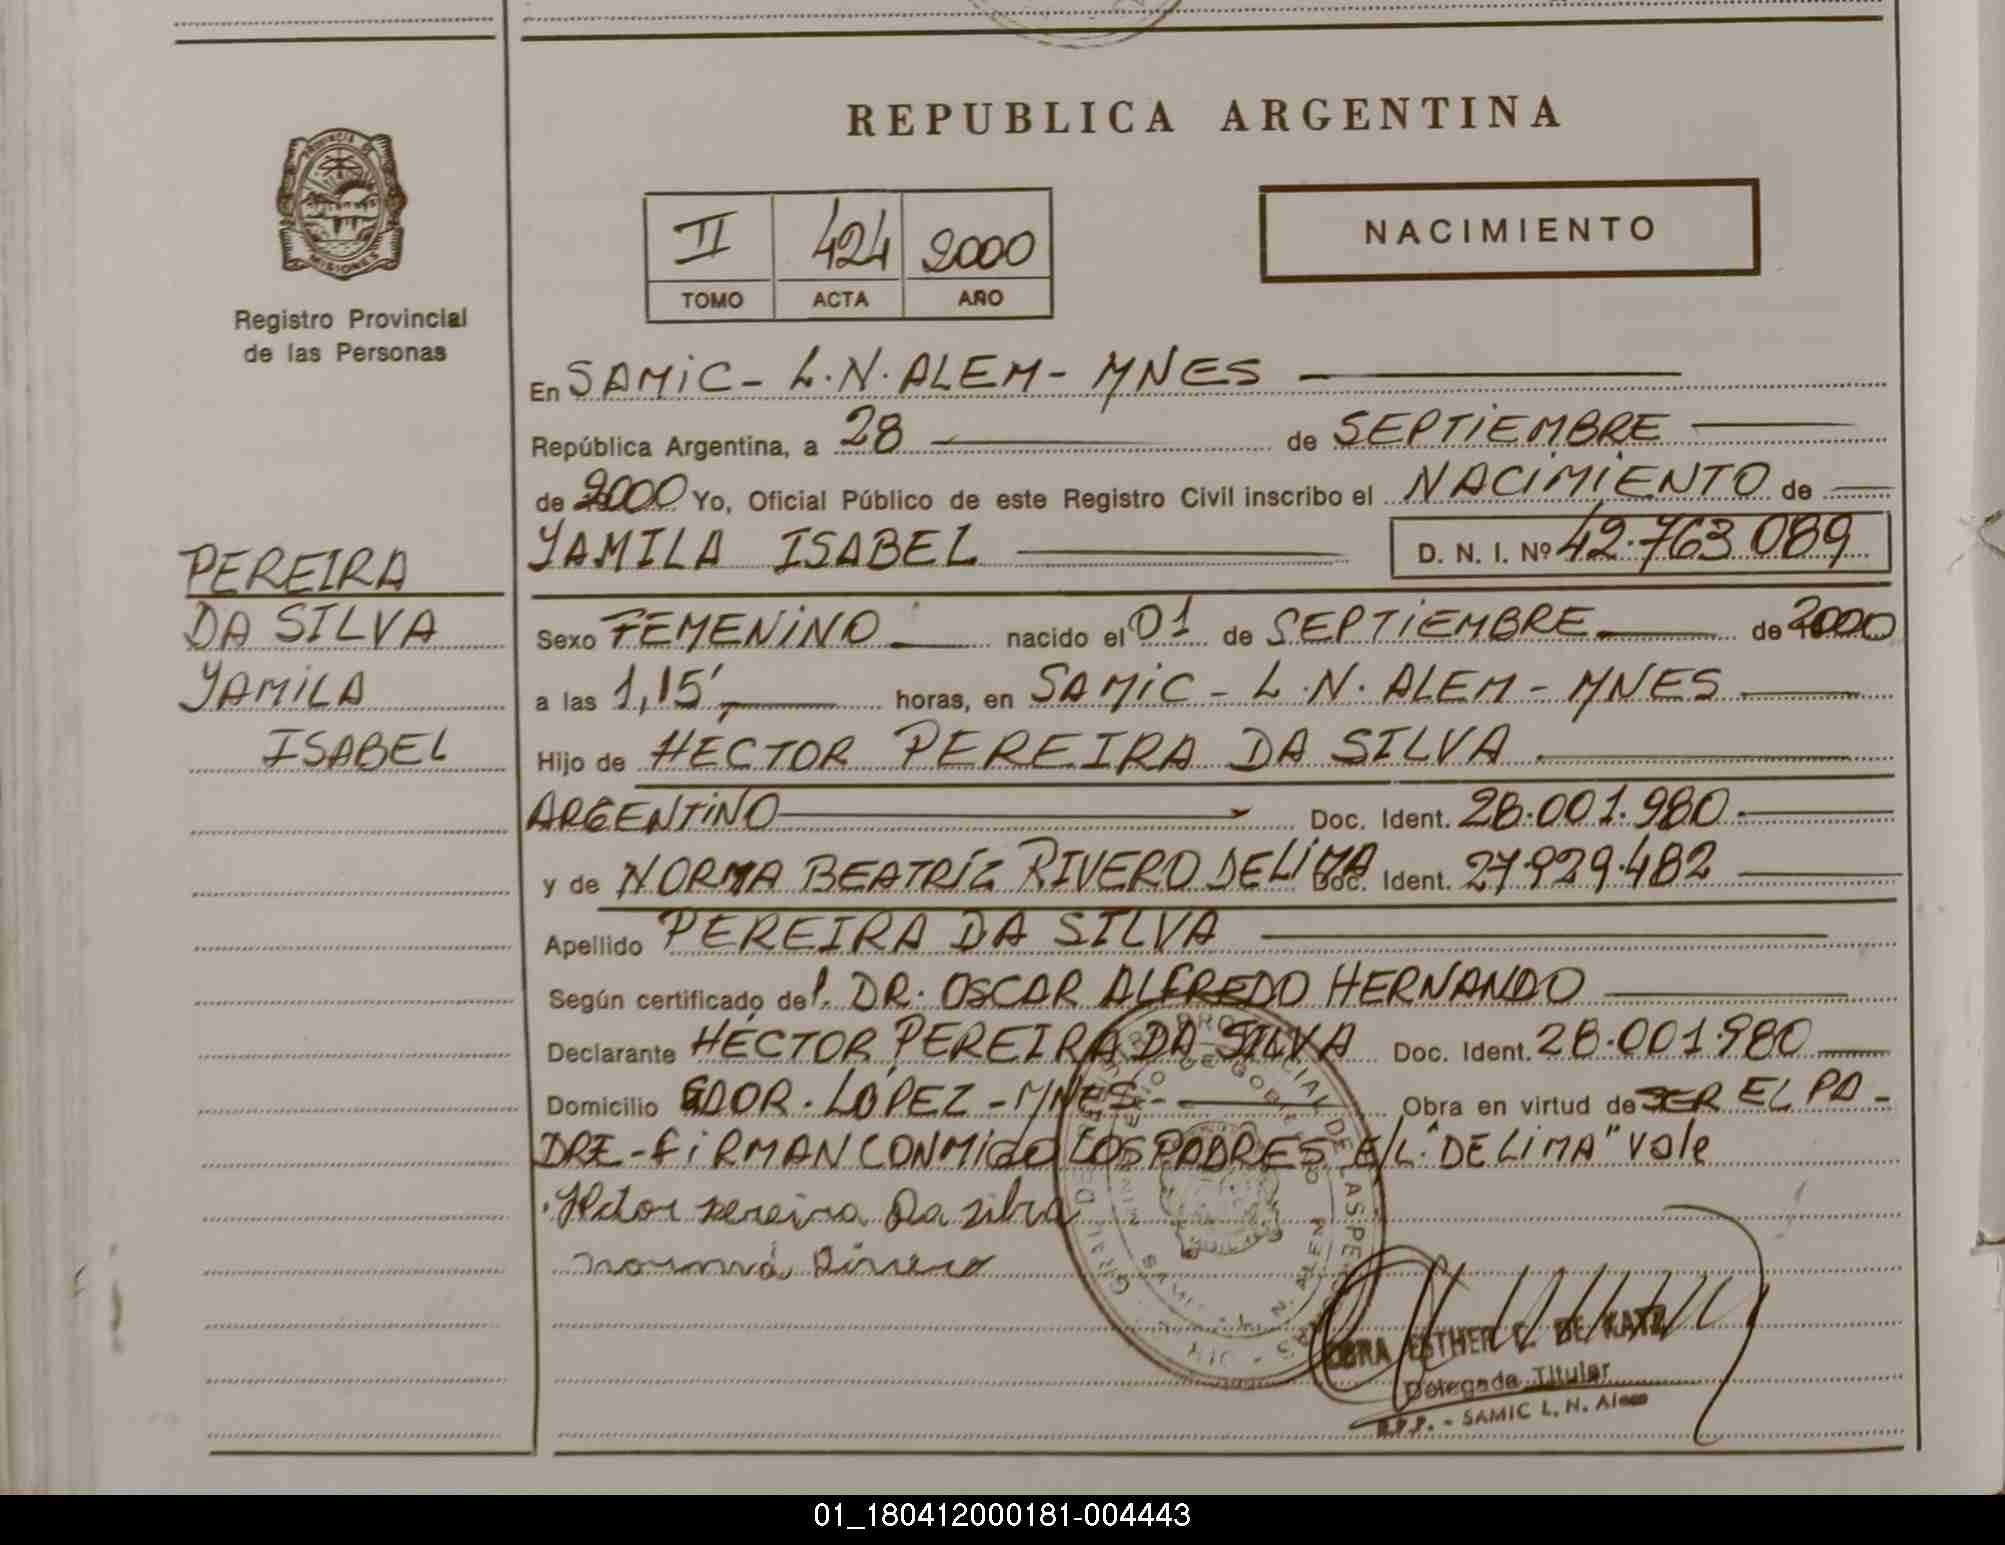 REPUBLICA ARGENTINA
PROVINCIA DE
MISIONES
Registro Provincial
de las Personas
II 424 2000
TOMO ACTA AÑO
NACIMIENTO
En SAMIC - L.N. ALEM - MNES
República Argentina, a 28 de SEPTIEMBRE
de 2000 Yo, Oficial Público de este Registro Civil inscribo el NACIMIENTO de
YAMILA ISABEL D. N. I. Nº 42.763.089
PEREIRA
DA SILVA
YAMILA
ISABEL
Sexo FEMENINO nacido el 01 de SEPTIEMBRE de 2000
a las 1,15' horas, en SAMIC - L.N. ALEM - MNES
Hijo de HECTOR PEREIRA DA SILVA
ARGENTINO Doc. Ident. 28.001.980
y de NORMA BEATRÍZ RIVERO DE LIMA Doc. Ident. 27.929.482
Apellido PEREIRA DA SILVA
Según certificado del. DR. OSCAR ALFREDO HERNANDO
Declarante HÉCTOR PEREIRA DA SILVA Doc. Ident. 28.001.980
Domicilio GDOR. LÓPEZ - MNES - Obra en virtud de SER EL PA-
DRE - FIRMAN CONMIGO LOS PADRES E/L "DE LIMA" Vale
Hector Pereira Da silva
norma Rivero
ESTHER F. DE KATZ
Delegada Titular
R.P.P. - SAMIC L. N. Alem
01_180412000181-004443